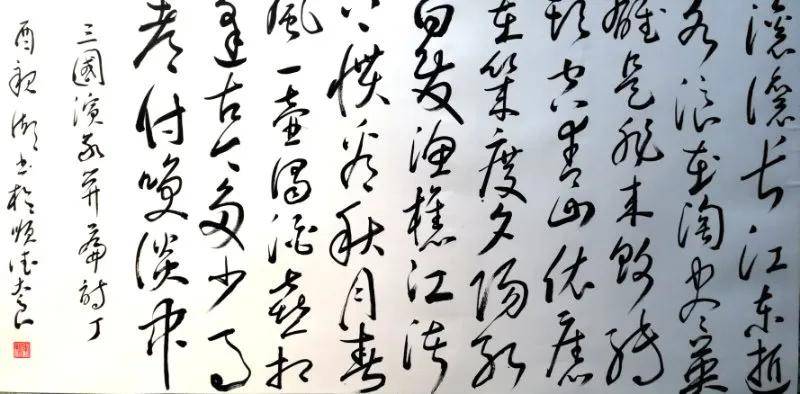 滚滚长江东逝
水浪花淘尽英
雄是非成败转
头空青山依旧
在几度夕阳红
白发渔樵江渚
上惯看秋月春
风一壶浊酒喜相
逢古今多少事
都付笑谈中
三國演义开篇诗丁
酉 湖书於顺德大良